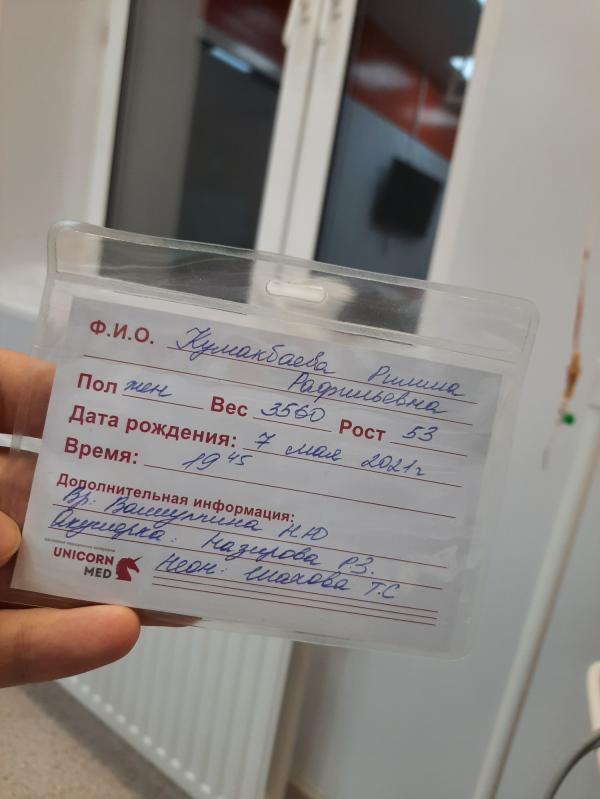 Ф.И.О. Кумакбаева Римма
Рафильевна
Пол жен Вес 3560 Рост 53
Дата рождения: 7 мая 2021г
Время: 19 45
Дополнительная информация:
Вр: Н.Ю
Акушерка: Назирова Р.З.
Неон: Шахова Т.С
UNICORN
MED